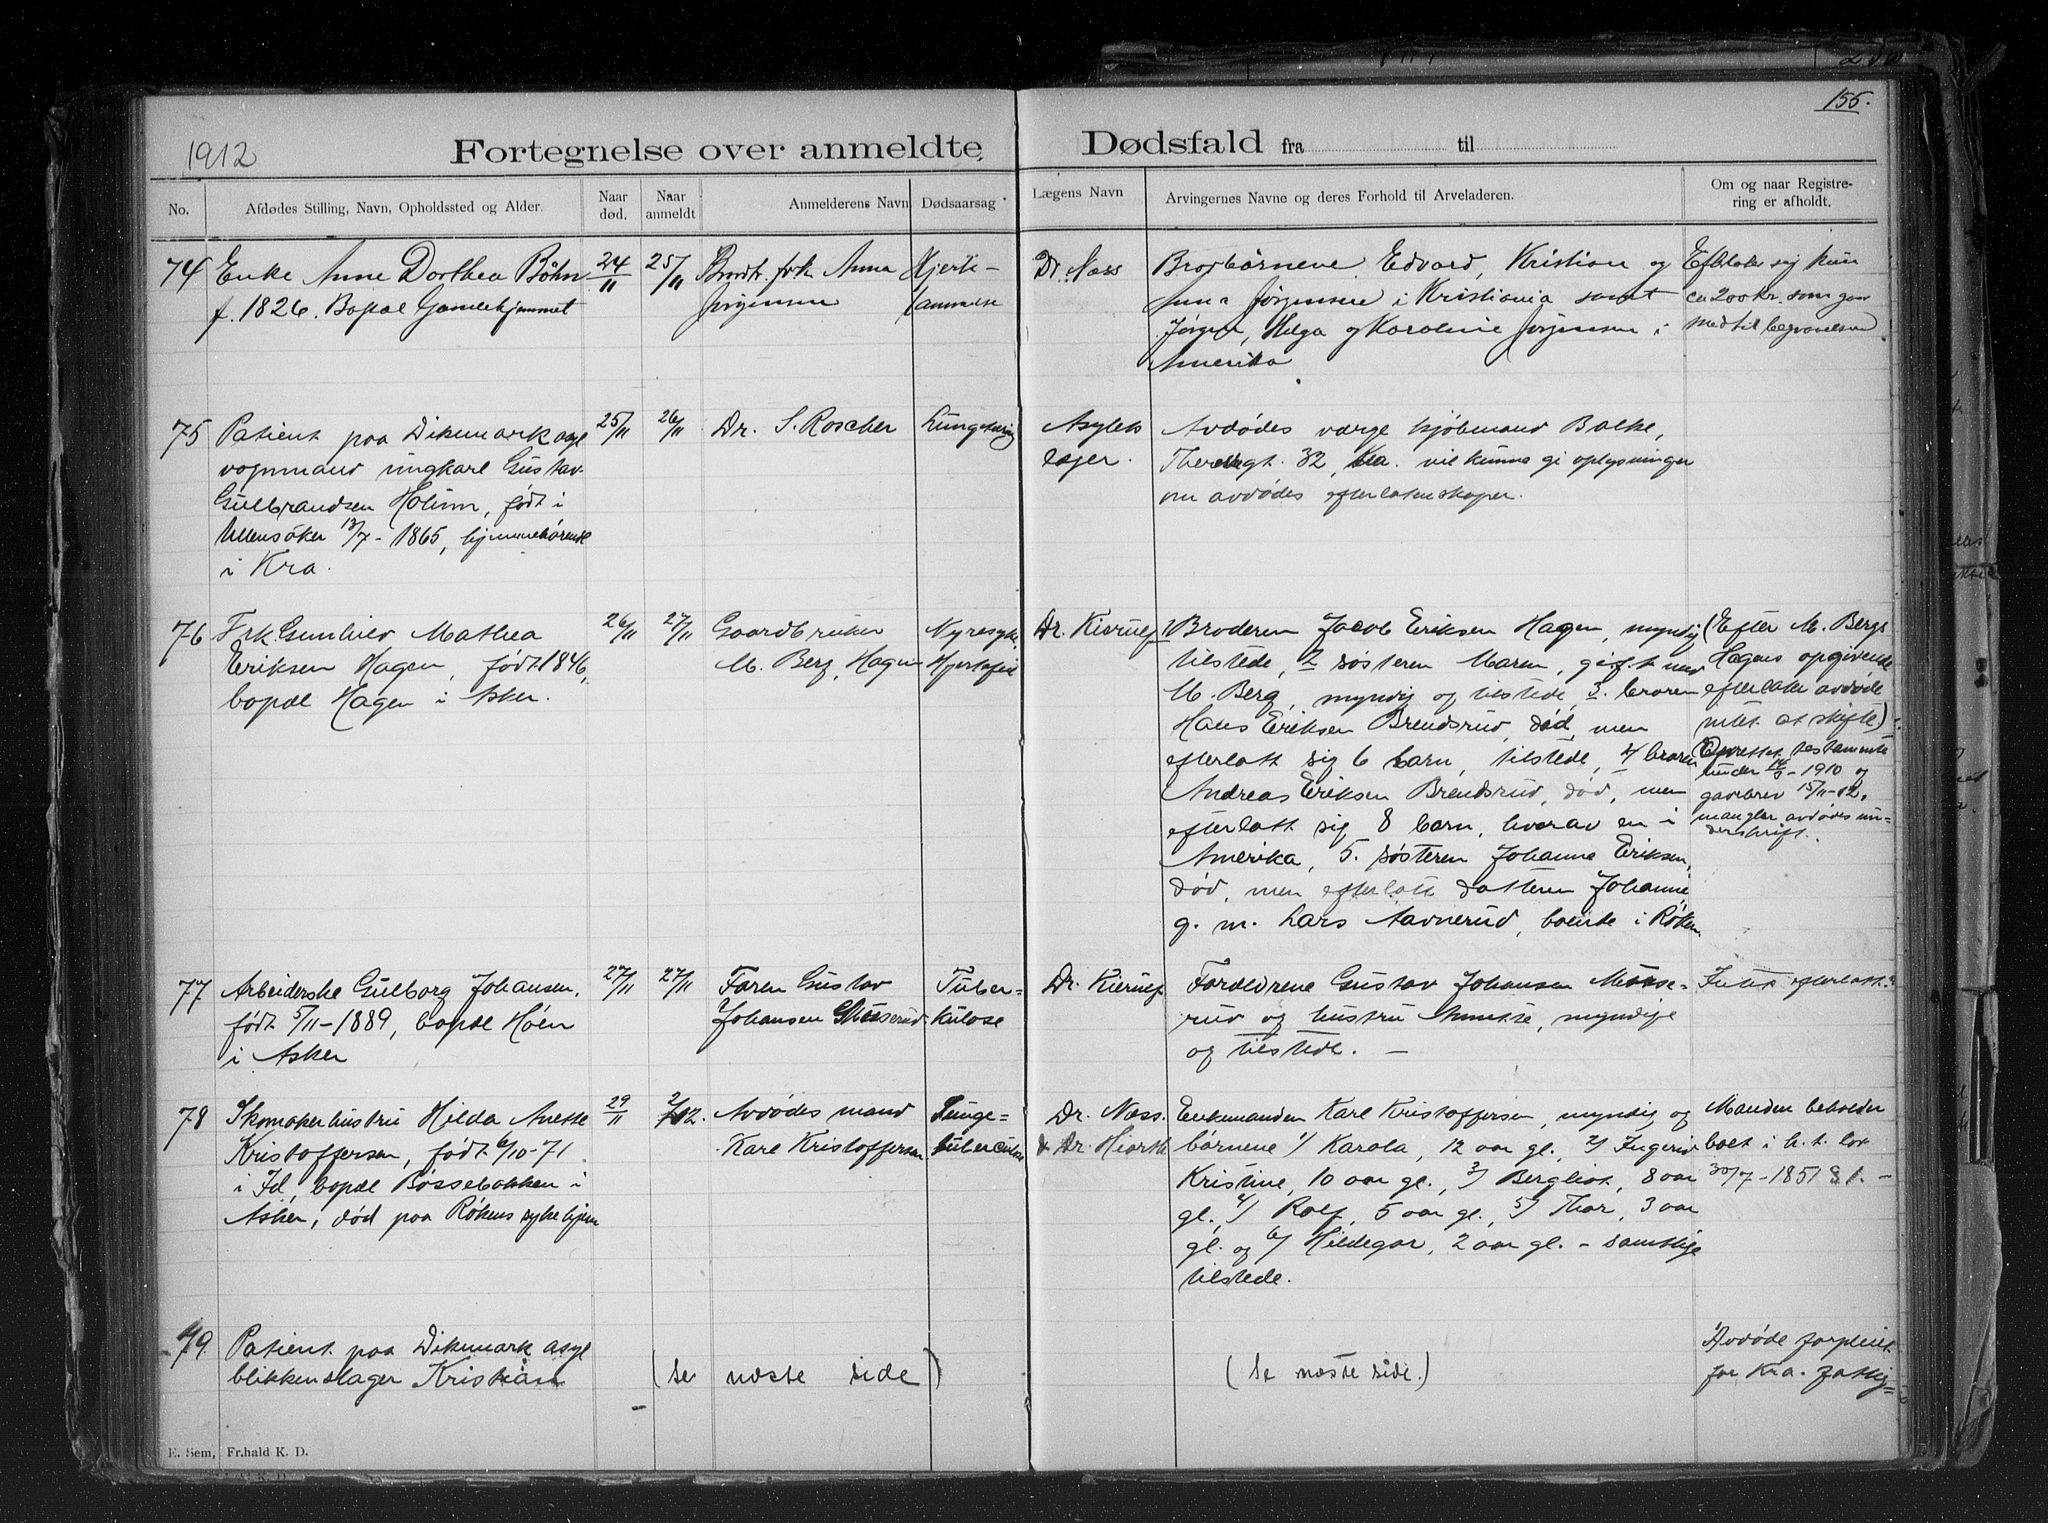 155.
1912
Fortegnelse over anmeldte Dødsfald fra til
No.
Afdødes Stilling, Navn, Opholdssted og Alder.
Naar død.
Naar anmeldt
Anmelderens Navn
Dødsaarsag
Lægens Navn
Arvingernes Navne og deres Forhold til Arveladeren.
Om og naar Registrering er afholdt.
74
Enke Anne Dorthea Böhn
f. 1826. Bopæl Gamlehjemmet
24/11
25/11
Brodr. frk Anna
Jørgensen
Hjerte-
lammelse
Dr. Næss
Brorbørnene Edvard, Kristian og
Anna Jørgensen i Kristiania samt
Jørgen, Helga og Karoline Jørgensen i
Amerika
Efterlot sig kun
ca 200 kr. som gaar
med til begravelsen
75
Patient paa Dikemark asyl
vognmand ungkarl Gustav
Gulbrandsen Holum, født i
Ullensøker 13/7-1865, hjemmehørende
i Kra.
25/11
26/11
Dr. S. Roscher
Lungetæring
Asylets
læger.
Avdødes værge kjøbmand Balke,
Theresegt. 32, Kra. vil kunne gi oplysninger
om avdødes efterlatenskaper.
76
Frk. Gunhild Mathea
Eriksen Hagen, født 1846,
bopæl Hagen i Asker.
26/11
27/11
Gaardbruker
M. Berg, Hagen
Nyresyke
Hjertefeil
Dr. Kierulf
1 Broderen Jacob Eriksen Hagen, myndig
tilstede, 2 søsteren Maren, gift med
M. Berg, myndig og tilstede, 3. broren
Hans Eriksen Brendsrud, død, men
efterlatt sig 6 barn, tilstede, 4/ broren
Andreas Eriksen Brendsrud, død, men
efterlatt sig 8 barn, hvorav en i
Amerika, 5. søsteren Johanne Eriksen,
død, men efterlatt datteren Johanne
g. m. Lars Aavnerud, boende i Røken
(Efter M. Bergs
Hagens opgivende
efterlater avdøde
intet at skifte).
Oprettet testamente
under 14/3-1910 og
gavebrev 15/11-12,
mangler avdødes un-
derskrift.
77
Arbeiderske Gulborg Johansen,
født 5/11-1889, bopæl Høn
i Asker
27/11
27/11
Faren Gustav
Johansen
Tuber-
kulose
Dr. Kierulf
Forældrene Gustav Johansen Musse-
rud og hustru Annette, myndige
og tilstede. —
Intet efterlatt.
78
Skomakerhustru Hilda Anette
Kristoffersen, født 6/10-71
i Id, bopæl Bøssebakken i
Asker, død paa Røkens sykehjem
29/11
2/12.
Avdødes mand
Karl Kristoffersen
Lunge-
tuberculose
Dr. Næss.
& Dr. Hiorth
Enkemanden Karl Kristoffersen, myndig og
børnene 1/ Karola, 12 aar gl., 2/ Ingerid
Kristine, 10 aar gl., 3/ Bergliot, 8 aar
gl., 4/ Rolf, 5 aar gl., 5/ Thor, 3 aar
gl. og 6/ Hildegar, 2 aar gl. - samtlige
tilstede.
Manden beholder
boet i h. t. lov
30/7-1851 § 1. -
79
Patient paa Dikemark asyl
blikkenslager Kristian
(se næste side)
(se næste side.)
Avdøde forpleiet
for Kra. fattig=
E. Sem, Fr.hald K. D.